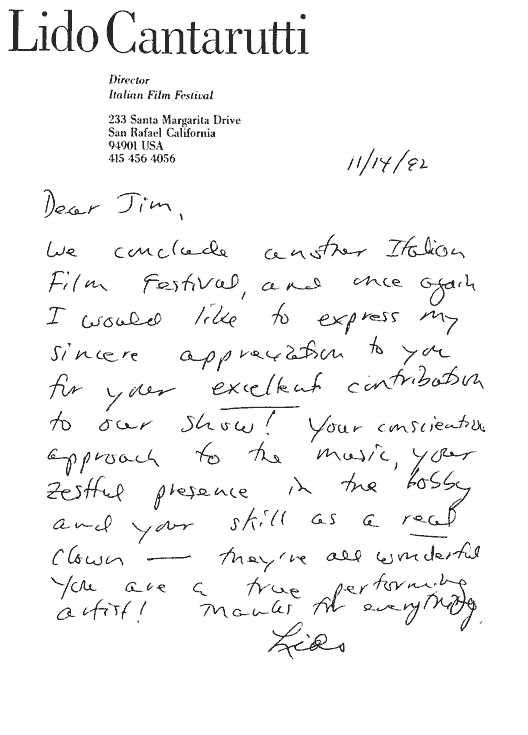 Lido Cantarutti
Director
Italian Film Festival
233 Santa Margarita Drive
San Rafael California
94901 USA
415 456 4056
11/14/92
Dear Jim,
We conclude another Italian
Film Festival, and once again
I would like to express my
sincere appreciation to you
for your excellent contribution
to our show! Your conscientious
approach to the music, your
zestful presence in the lobby
and your skill as a real
clown — they're all wonderful
You are a true performing
artist! Thanks for everything.
Lido